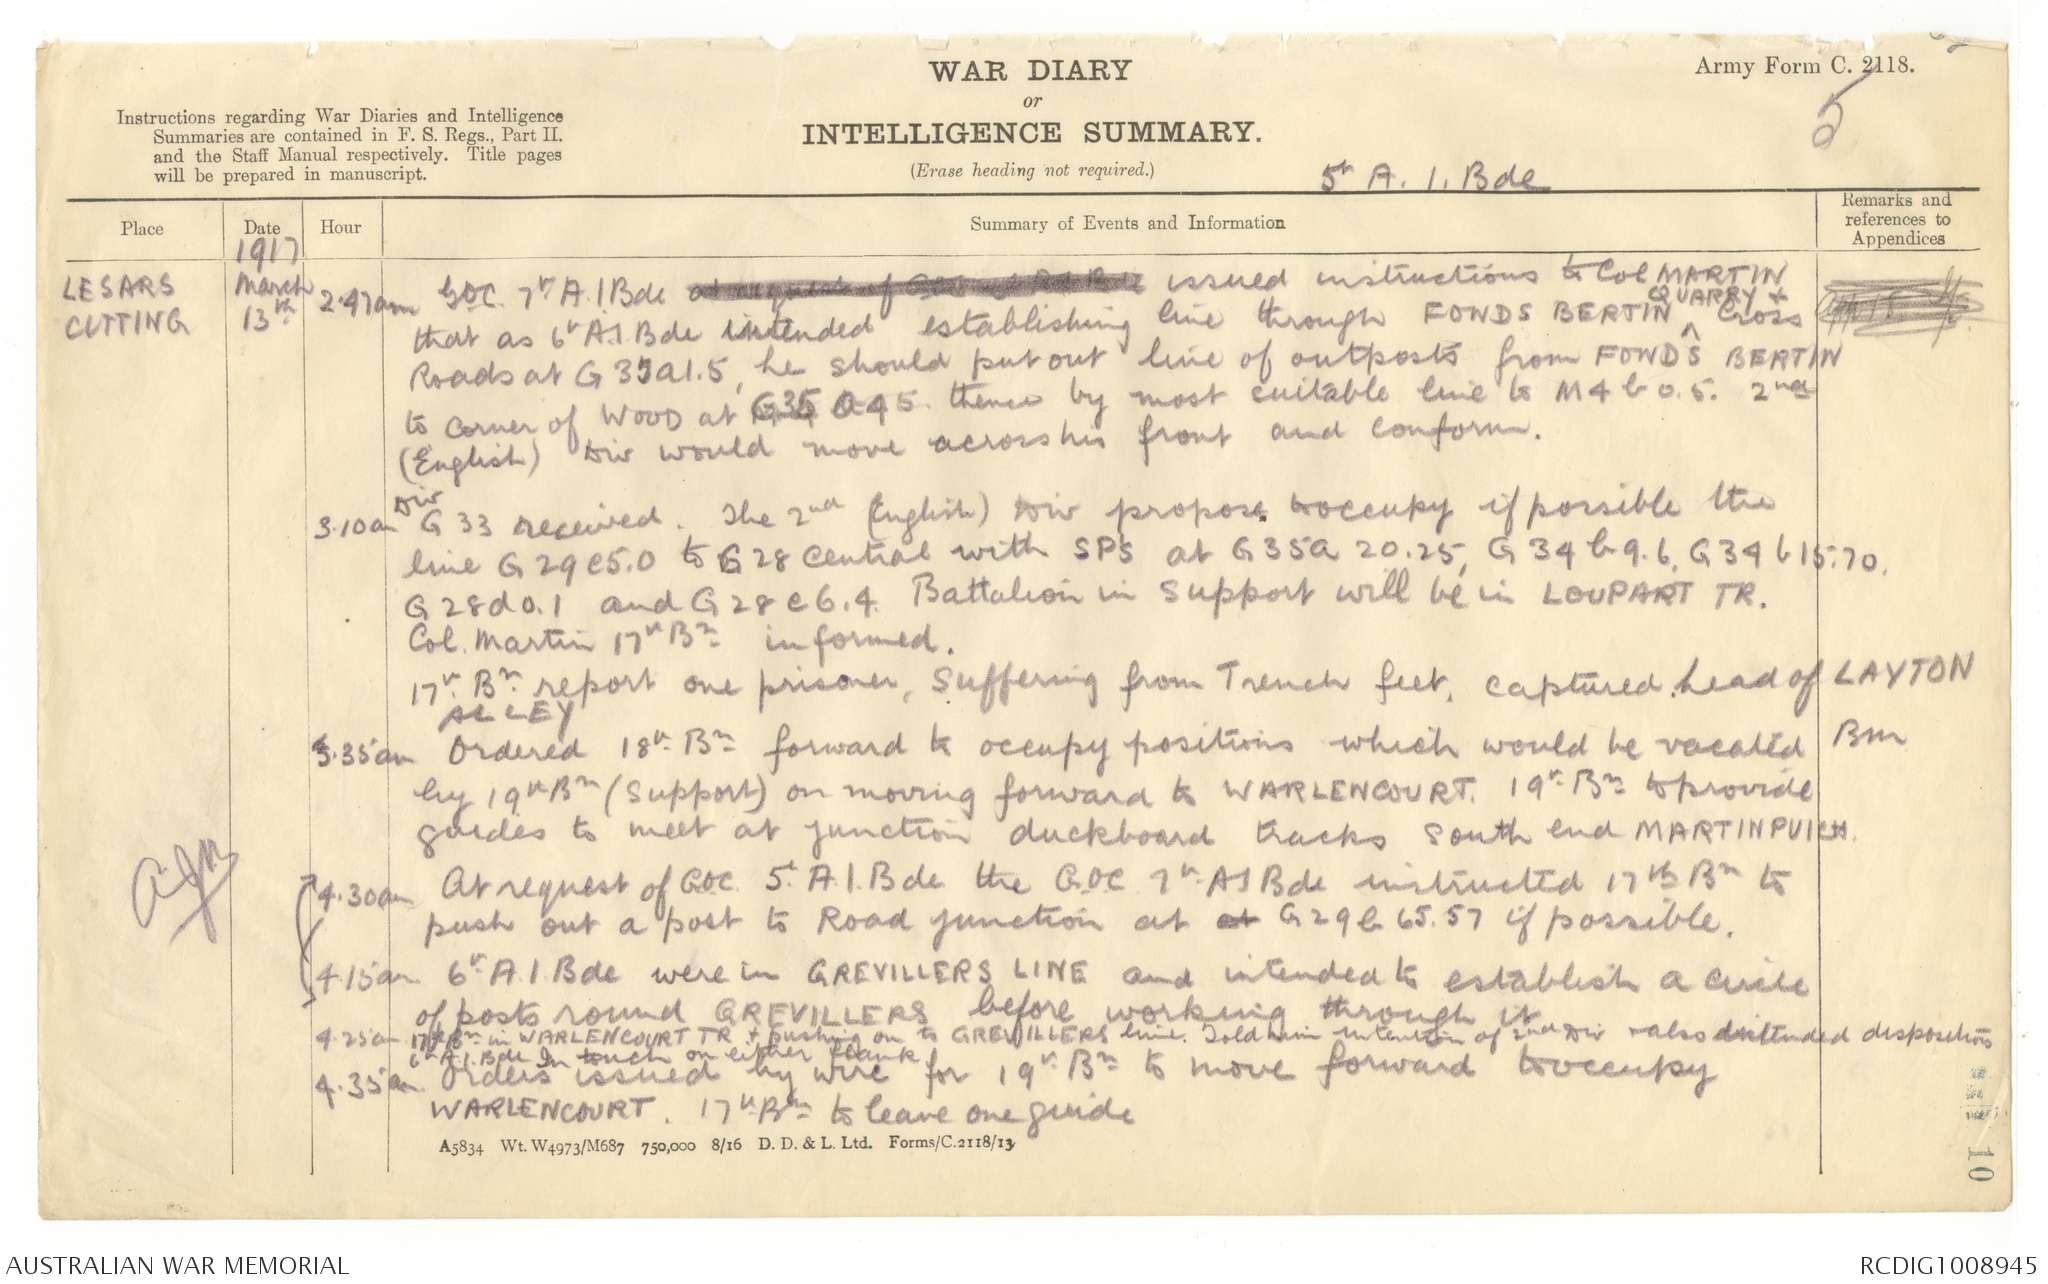 WAR DIARY
or
INTELLIGENCE SUMMARY.
(Erase heading not required.)
Army Form C. 2118.
5
Instructions regarding War Diaries and Intelligence
Summaries are contained in F. S. Regs., Part II.
and the Staff Manual respectively. Title pages
will be prepared in manuscript.
5th A. I. Bde
Place
Date
Hour
Summary of Events and Information
Remarks and
references to
Appendices
1917
LESARS
CUTTING
March
13th
2.47am GOC. 7th A.I Bde issued instructions to Col MARTIN
that as 6th A.I. Bde intended establishing line through FONDS BERTIN QUARRY & Cross
Roads at G35a1.5, he should put out line of outposts from FONDS BERTIN
to corner of WOOD at G35 a 45 thence by most suitable line to M4b0.5. 2nd
(English) Div would move across his front and conform.
3.10am Div G 33 received. The 2nd (English) Div propose to occupy if possible the
line G29c5.0 to G28 central with SPS at G35a 20.25, G34b9.6, G34b15.70,
G28d0.1 and G28c6.4. Battalion in Support will be in LOUPART TR.
Col. Martin 17th Bn informed.
17th Bn report one prisoner, suffering from Trench feet, captured head of LAYTON
ALLEY
3.35am Ordered 18th Bn forward to occupy positions which would be vacated
by 19th Bn (Support) on moving forward to WARLENCOURT. 19th Bn to provide
guides to meet at junction duckboard tracks South end MARTINPUICH.
Bm
4.30am At request of GOC. 5th A.I.Bde the GOC 7th AI Bde instructed 17th Bn to
push out a post to Road junction at at G29b65.57 if possible.
4.15am 6th A.I.Bde were in GREVILLERS LINE and intended to establish a circle
of posts round GREVILLERS before working through it
4.25am 17th Bn in WARLENCOURT TR & pushing on to GREVILLERS line. Told him intention of 2nd Div & also intended dispositions
6th A.I.Bde In touch on either flank
4.35am Orders issued by wire for 19th Bn to move forward to occupy
WARLENCOURT. 17th Bn to leave one guide
A5834 Wt. W4973/M687 750,000 8/16 D. D. & L. Ltd. Forms/C.2118/13
10
AUSTRALIAN WAR MEMORIAL
RCDIG1008945